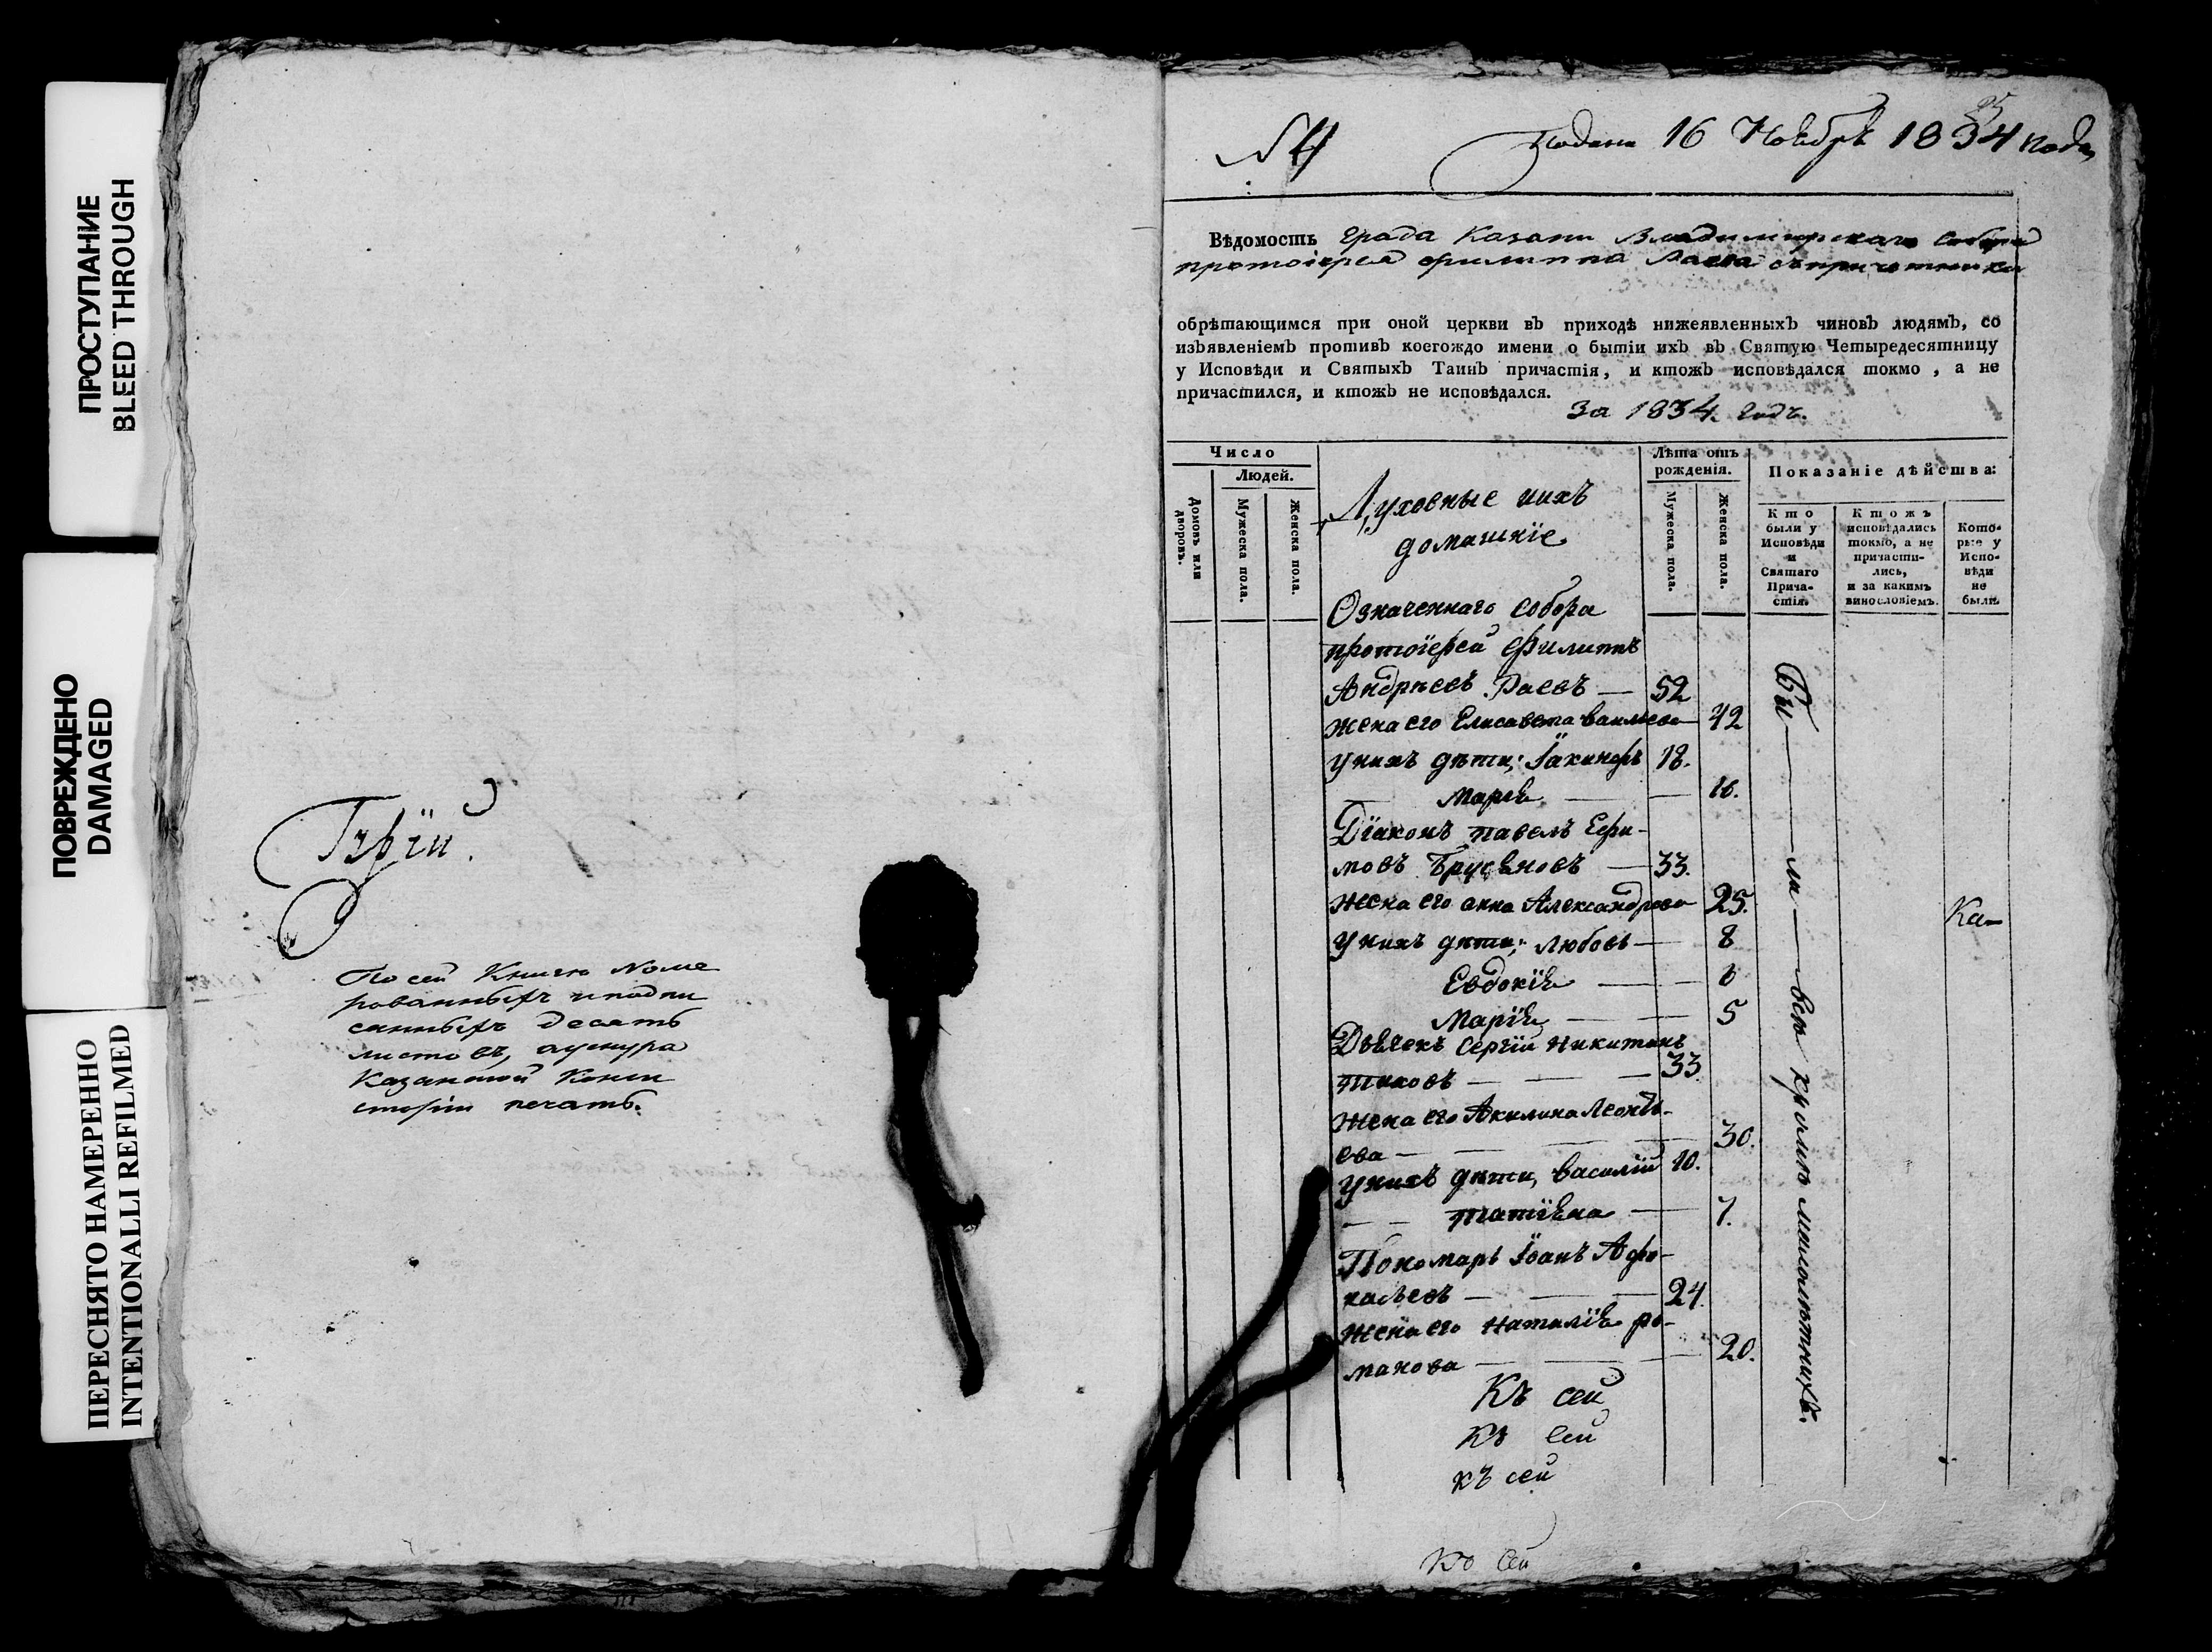 ПРОСТУПАНИЕ
BLEED THROUGH
ПОВРЕЖДЕНО
DAMAGED
ПЕРЕСНЯТО НАМЕРЕННО
INTENTIONALLI REFILMED
По сей Книгѣ Номе
рованныхъ и подпи
санныхъ десять
листовъ, а у шнура
Казанской Конси
сторіи печать.
№ 4
Подана 16 Ноября 1834 года
Вѣдомость Града Казани Владимирскаго Собора
протоіерея Филиппа Раева съ причетники
обрѣтающимся при оной церкви въ приходѣ нижеявленныхъ чиновъ людямъ, со
изъявленіемъ противъ коегождо имени о бытіи ихъ въ Святую Четыредесятницу
у Исповѣди и Святыхъ Таинъ причастія, и ктожъ исповѣдался токмо, а не
причастился, и ктожъ не исповѣдался.
За 1834. годъ.
Число
Людей.
Домовъ или дворовъ.
Мужеска пола.
Женска пола.
Духовные и ихъ
домашніе
Лѣта отъ
рожденія.
Мужеска пола.
Женска пола.
Показаніе дѣйства:
Кто
были у
Исповѣди
и
Святаго
Прича-
стія.
Ктожъ
исповѣдались
токмо, а не
причасти-
лись,
и за какимъ
винословіемъ.
Кото-
рые у
Испо-
вѣди
не
были.
Означеннаго собора
протоіерей Филиппъ
Андреевъ Раевъ — 52
жена его Елисавета Васильева 42
у нихъ дѣти; Іакинфъ 18.
— Марія — — 16.
Діаконъ павелъ Ефи-
мовъ Брусяновъ — 33.
жена его анна Александрова 25.
у нихъ дѣти; Любовь — 8
Евдокія — — 6
Марія — — 5
Дьячекъ Сергій Никитинъ
— — — 33
жена его Акилина Леонть-
ева — — 30.
у нихъ дѣти, Василій 10.
— — татіяна — 7.
Пономарь Іоанъ Афо-
насьевъ — — — 24.
жена его Наталія ро-
манова — — — 20.
Бы — ли — вси кромѣ малолѣтнихъ.
Ка—
Къ сей
Къ сей
къ сей
Ко сей